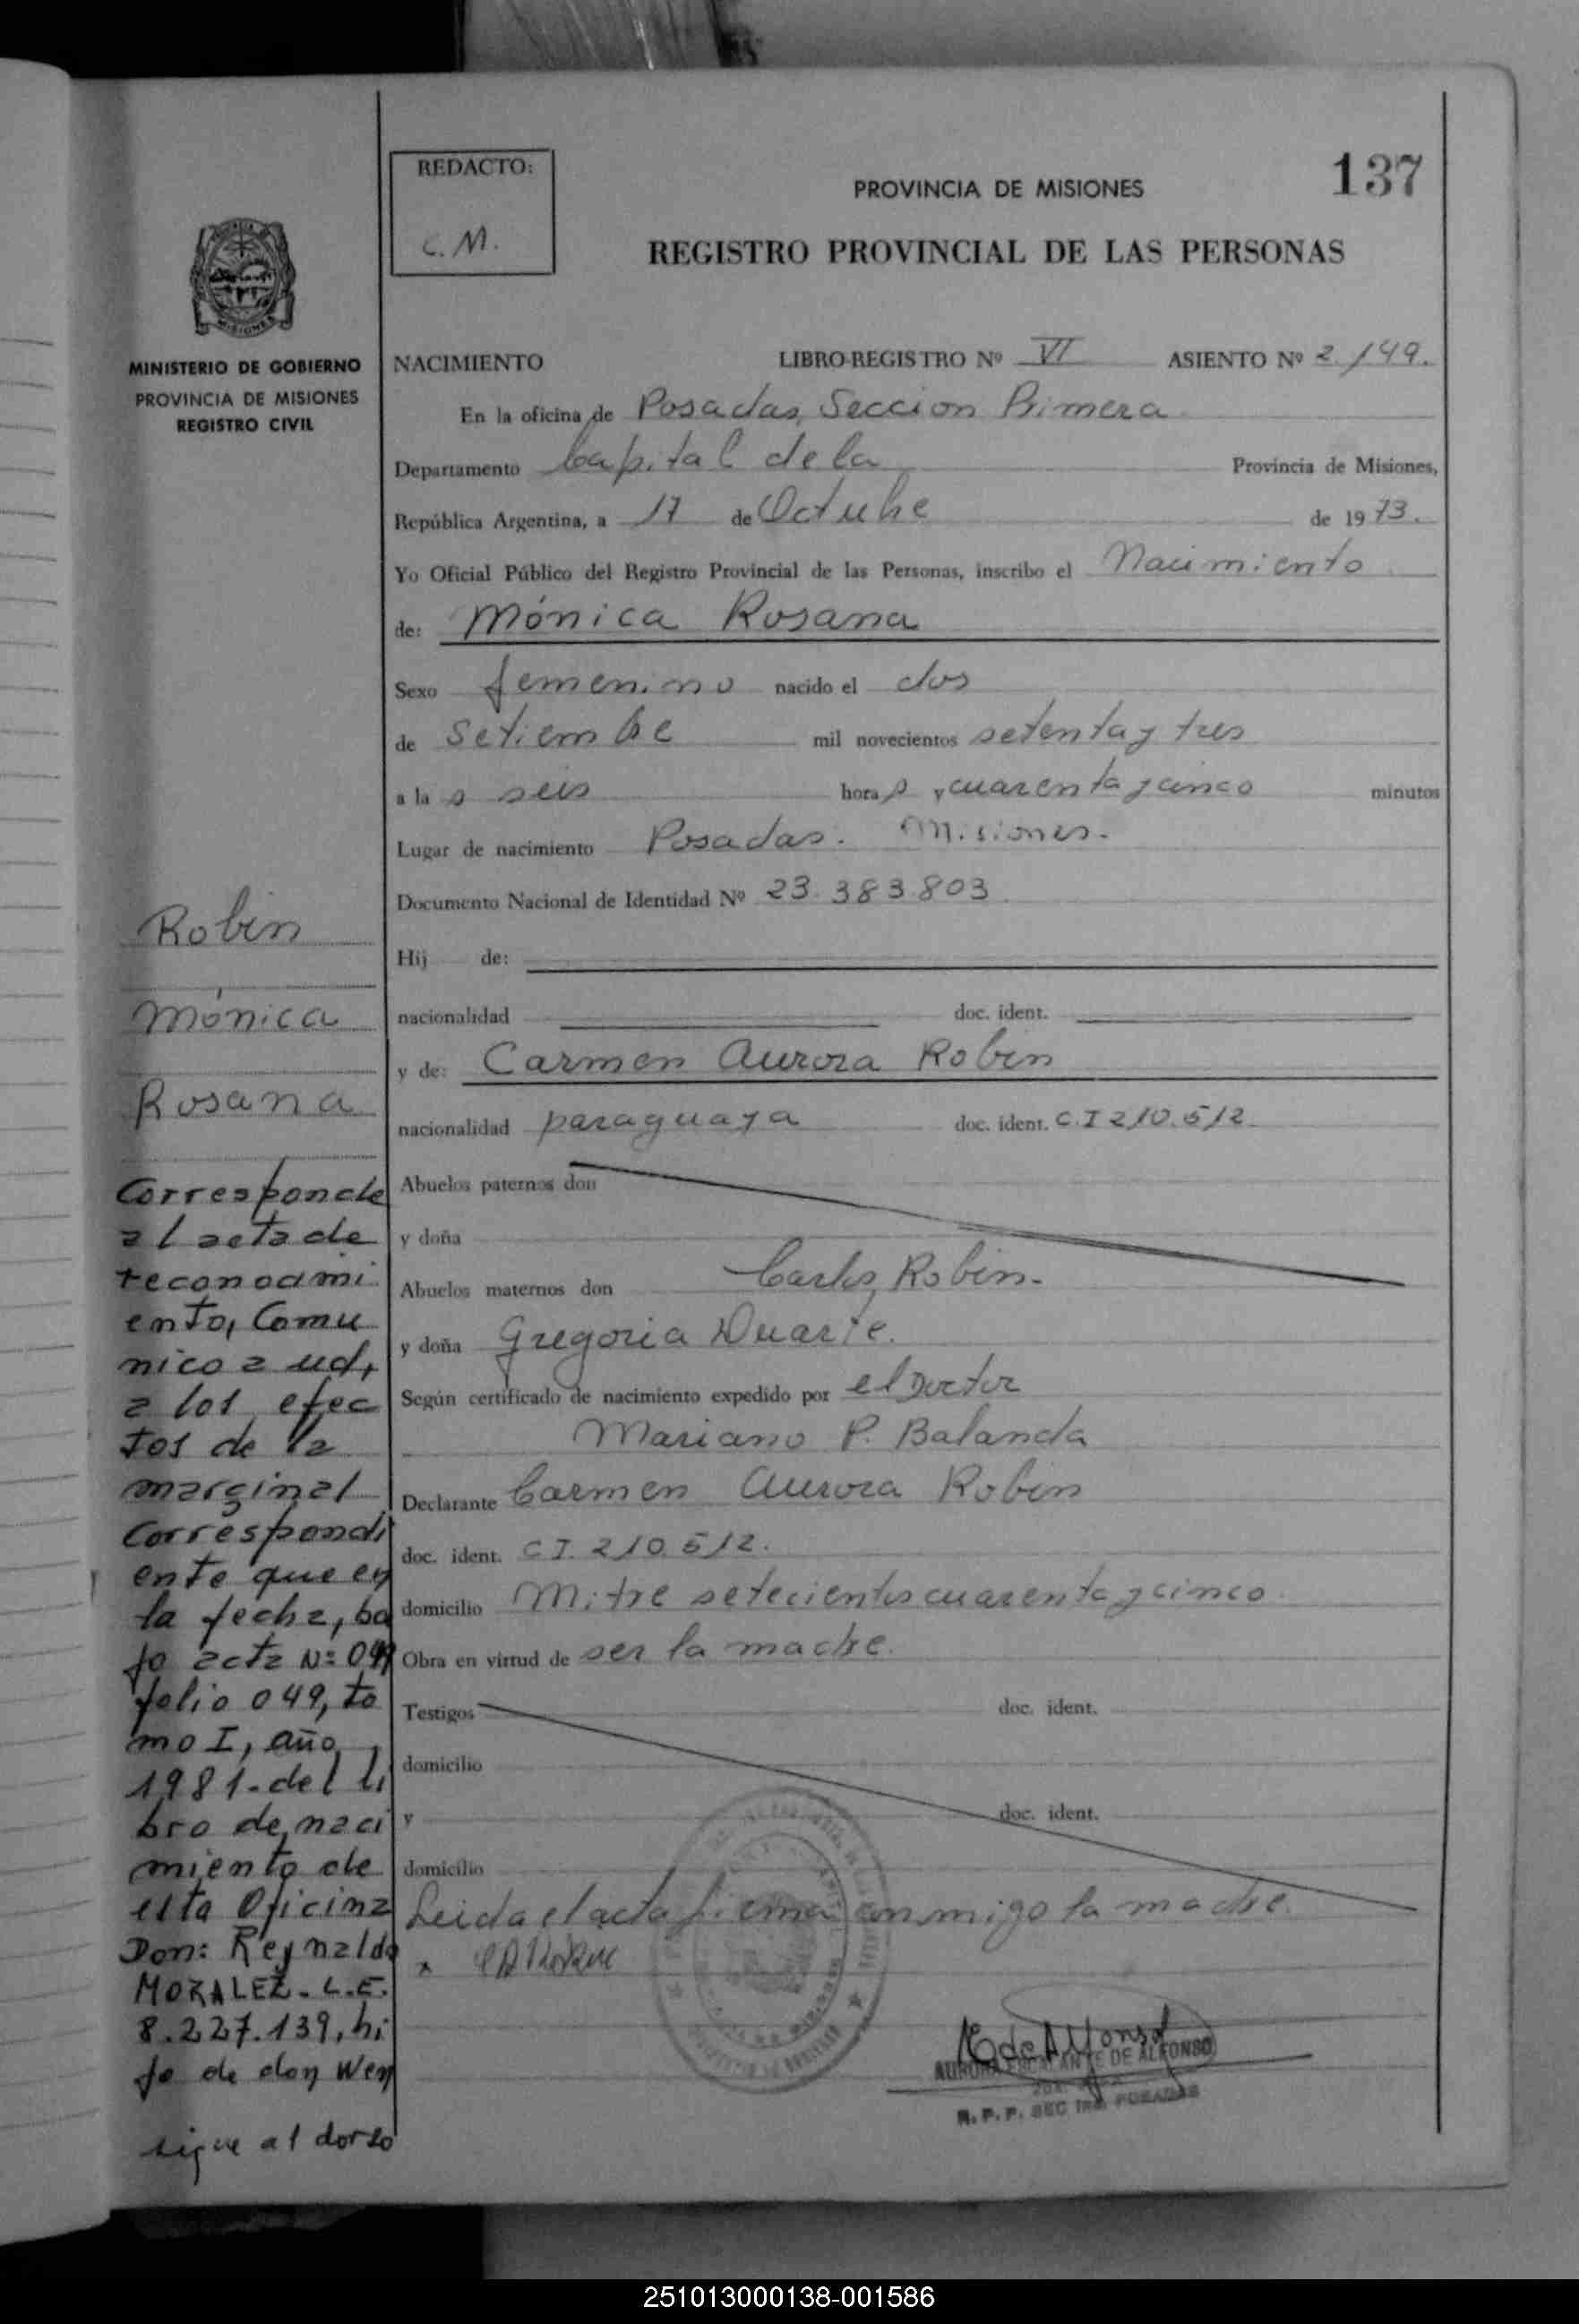 137
REDACTO:
C. M.
PROVINCIA DE MISIONES
REGISTRO PROVINCIAL DE LAS PERSONAS
MISIONES
MINISTERIO DE GOBIERNO
PROVINCIA DE MISIONES
REGISTRO CIVIL
NACIMIENTO LIBRO-REGISTRO Nº VI ASIENTO Nº 2.149.
En la oficina de Posadas, Seccion Primera
Departamento Capital de la Provincia de Misiones,
República Argentina, a 17 de Octubre de 1973.
Yo Oficial Público del Registro Provincial de las Personas, inscribo el Nacimiento
de: Mónica Rosana
Sexo femenino nacido el dos
de Setiembre mil novecientos setenta y tres
a la s seis hora s y cuarenta y cinco minutos
Lugar de nacimiento Posadas. Misiones.
Documento Nacional de Identidad Nº 23.383.803
Hij de:
nacionalidad doc. ident.
y de: Carmen Aurora Robin
nacionalidad paraguaya doc. ident. C.I 210.512
Abuelos paternos don
y doña
Abuelos maternos don Carlos Robin.
y doña Gregoria Duarte.
Según certificado de nacimiento expedido por el Doctor
Mariano P. Balanda
Declarante Carmen Aurora Robin
doc. ident. C I. 210.512.
domicilio Mitre setecientos cuarenta y cinco.
Obra en virtud de ser la madre.
Testigos doc. ident.
domicilio
y doc. ident.
domicilio
Leida el acta firma conmigo la madre.
AURORA ESCALANTE DE ALFONSO
R. P. P. SEC 1ra POSADAS
Robin
Mónica
Rosana
Corresponde
al acta de
reconocimi
ento, Comu
nico a ud,
a los efec
tos de la
marginal
Correspondi
ente que en
la fecha, ba
jo acta Nº 049
folio 049, to
mo I, año
1981.- del li
bro de naci
miento de
esta Oficina
Don: Reynaldo
MORALEZ.- L.E.
8.227.139, hi
jo de don Wen
sigue al dorso
251013000138-001586